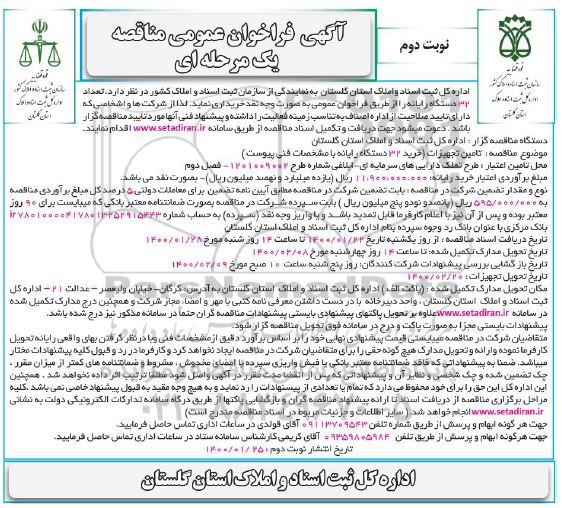 آگهی فراخوان عمومی مناقصه
یک مرحله ای
نوبت دوم
اداره کل ثبت اسناد واملاک استان گلستان به نمایندگی از سازمان ثبت اسناد و املاک کشور در نظر دارد. تعداد
۳۲ دستگاه رایانه را از طریق فراخوان عمومی به صورت وجه نقد خریداری نماید. لذا از شرکت ها و اشخاصی که
دارای تایید صلاحیت از اداره اصناف به تناسب زمینه فعالیت را داشته و پیشنهاد فنی آنها مورد تایید مناقصه گزار
باشد . دعوت میشود جهت دریافت و تکمیل اسناد مناقصه از طریق سامانه www.setadiran.ir اقدام نمایند.
دستگاه مناقصه گزار : اداره کل ثبت اسناد و املاک استان گلستان
موضوع مناقصه : تامین تجهیزات (خرید ۳۲ دستگاه رایانه با مشخصات فنی پیوست)
محل تامین اعتبار : طرح تملک دارایی های سرمایه ای- ابلاغی شماره طرح ۱۲۰۱۰۰۹۰۰۲ - فصل دوم
مبلغ برآوردی اعتبار خرید رایانه: ۱۱،۹۰۰،۰۰۰،۰۰۰ ریال (یازده میلیارد و نهصد میلیون ریال)- بصورت نقد می باشد.
نوع و مقدار تضمین شرکت در مناقصه : بابت تضمین شرکت در مناقصه مطابق آیین نامه تضمین برای معاملات دولتی ۵ درصد کل مبلغ برآوردی مناقصه
به ۵۹۵/۰۰۰/۰۰۰ ریال (پانصدو نودو پنج میلیون ریال ) بابت سپرده شرکت در مناقصه بصورت ضمانتنامه معتبر بانکی که میبایست برای ۹۰ روز
معتبر بوده و پس از آن نیز با اعلام کارفرما قابل تمدید باشد و یا واریز وجه نقد (سپرده) به حساب شماره
بانک مرکزی با عنوان بانک رد وجوه سپرده بنام اداره کل ثبت اسناد و املاک استان گلستان
تاریخ دریافت اسناد مناقصه : از روز یکشنبه تاریخ ۱۴۰۰/۰۱/۲۲ تا ساعت ۱۴ روز شنبه مورخ ۱۴۰۰/۰۱/۲۸
تاریخ تحویل مدارک تکمیل شده: تا ساعت ۱۴ روز چهارشنبه مورخ ۱۴۰۰/۰۲/۰۸
تاریخ باز گشایی بررسی پیشنهادات شرکت کنندگان: روز پنج شنبه ساعت ۱۰ صبح مورخ ۱۴۰۰/۰۲/۰۹
تاریخ تحویل تجهیزات: ۱۴۰۰/۰۲/۲۰
مکان تحویل مدارک تکمیل شده : (پاکت الف) اداره کل ثبت اسناد و املاک استان گلستان به آدرس- گرگان- خیابان ولیعصر – عدالت ۲۱ – اداره کل
ثبت اسناد و املاک استان گلستان، واحد دبیرخانه با در دست داشتن معرفی نامه کتبی با مهر و امضاء مجاز شرکت و همچنین درج مدارک تکمیل شده
در سامانه www.setadiran.ir علاوه بر تحویل پاکتهای پیشنهادی بایستی پیشنهادات مناقصه گران حتماً در سامانه مذکور نیز درج شده باشد.
پیشنهادات بایستی مجزا به صورت پاکت و درج در سامانه فوق تحویل مناقصه گزار شود.
متقاضیان شرکت در مناقصه میبایستی قیمت پیشنهادی نهایی خود را بر اساس برآورد دقیق از مشخصات فنی و با در نظر گرفتن بهای واقعی رایانه تحویل
کارفرما نموده و ارائه و تحویل مدارک هیچ گونه حقی را برای متقاضیان شرکت در مناقصه ایجاد نخواهد کرد و کارفرما در رد و قبول کلیه پیشنهادات مختار
میباشد. ضمناً به پیشنهاداتی که فاقد ضمانتنامه معتبر بانکی یا فیش واریزی سپرده یا امضای مخدوش ، مشروط و ضمانتنامه های کمتر از میزان مقرر ،
چک تضمین شده و چک شخصی و نظایر آن و پیشنهاداتی که پس از انقضا مدت مقرر در آگهی واصل شود مطلقا ترتیب اثر داده نخواهد شد . همچنین
این اداره کل این حق را برای خود محفوظ می دارد که تمام یا تعدادی از پیشنهادات را رد نماید و به هیچ وجه مقید به قبول پیشنهاد خاصی نمی باشد .کلیه
مراحل برگزاری مناقصه از دریافت اسناد تا ارائه پیشنهاد مناقصه گران و بازگشایی پاکتها از طریق درگاه سامانه تدارکات الکترونیکی دولت به نشانی
www.setadiran.ir انجام خواهد شد.( سایر اطلاعات و جزئیات مربوط در اسناد مناقصه مندرج است)
جهت هر گونه ابهام و پرسش از طریق شماره تلفن ۰۹۱۱۳۷۰۹۵۴۳ آقای قولدی در ساعات اداری تماس حاصل فرمایید.
جهت هرگونه ابهام و پرسش از طریق تلفن ۰۹۳۵۹۸۰۵۹۸۴ آقای کریمی کارشناس سامانه ستاد در ساعات اداری تماس حاصل فرمایید.
تاریخ انتشار نوبت دوم : ۱۴۰۰/۰۱/۲۵
اداره کل ثبت اسناد و املاک استان گلستان